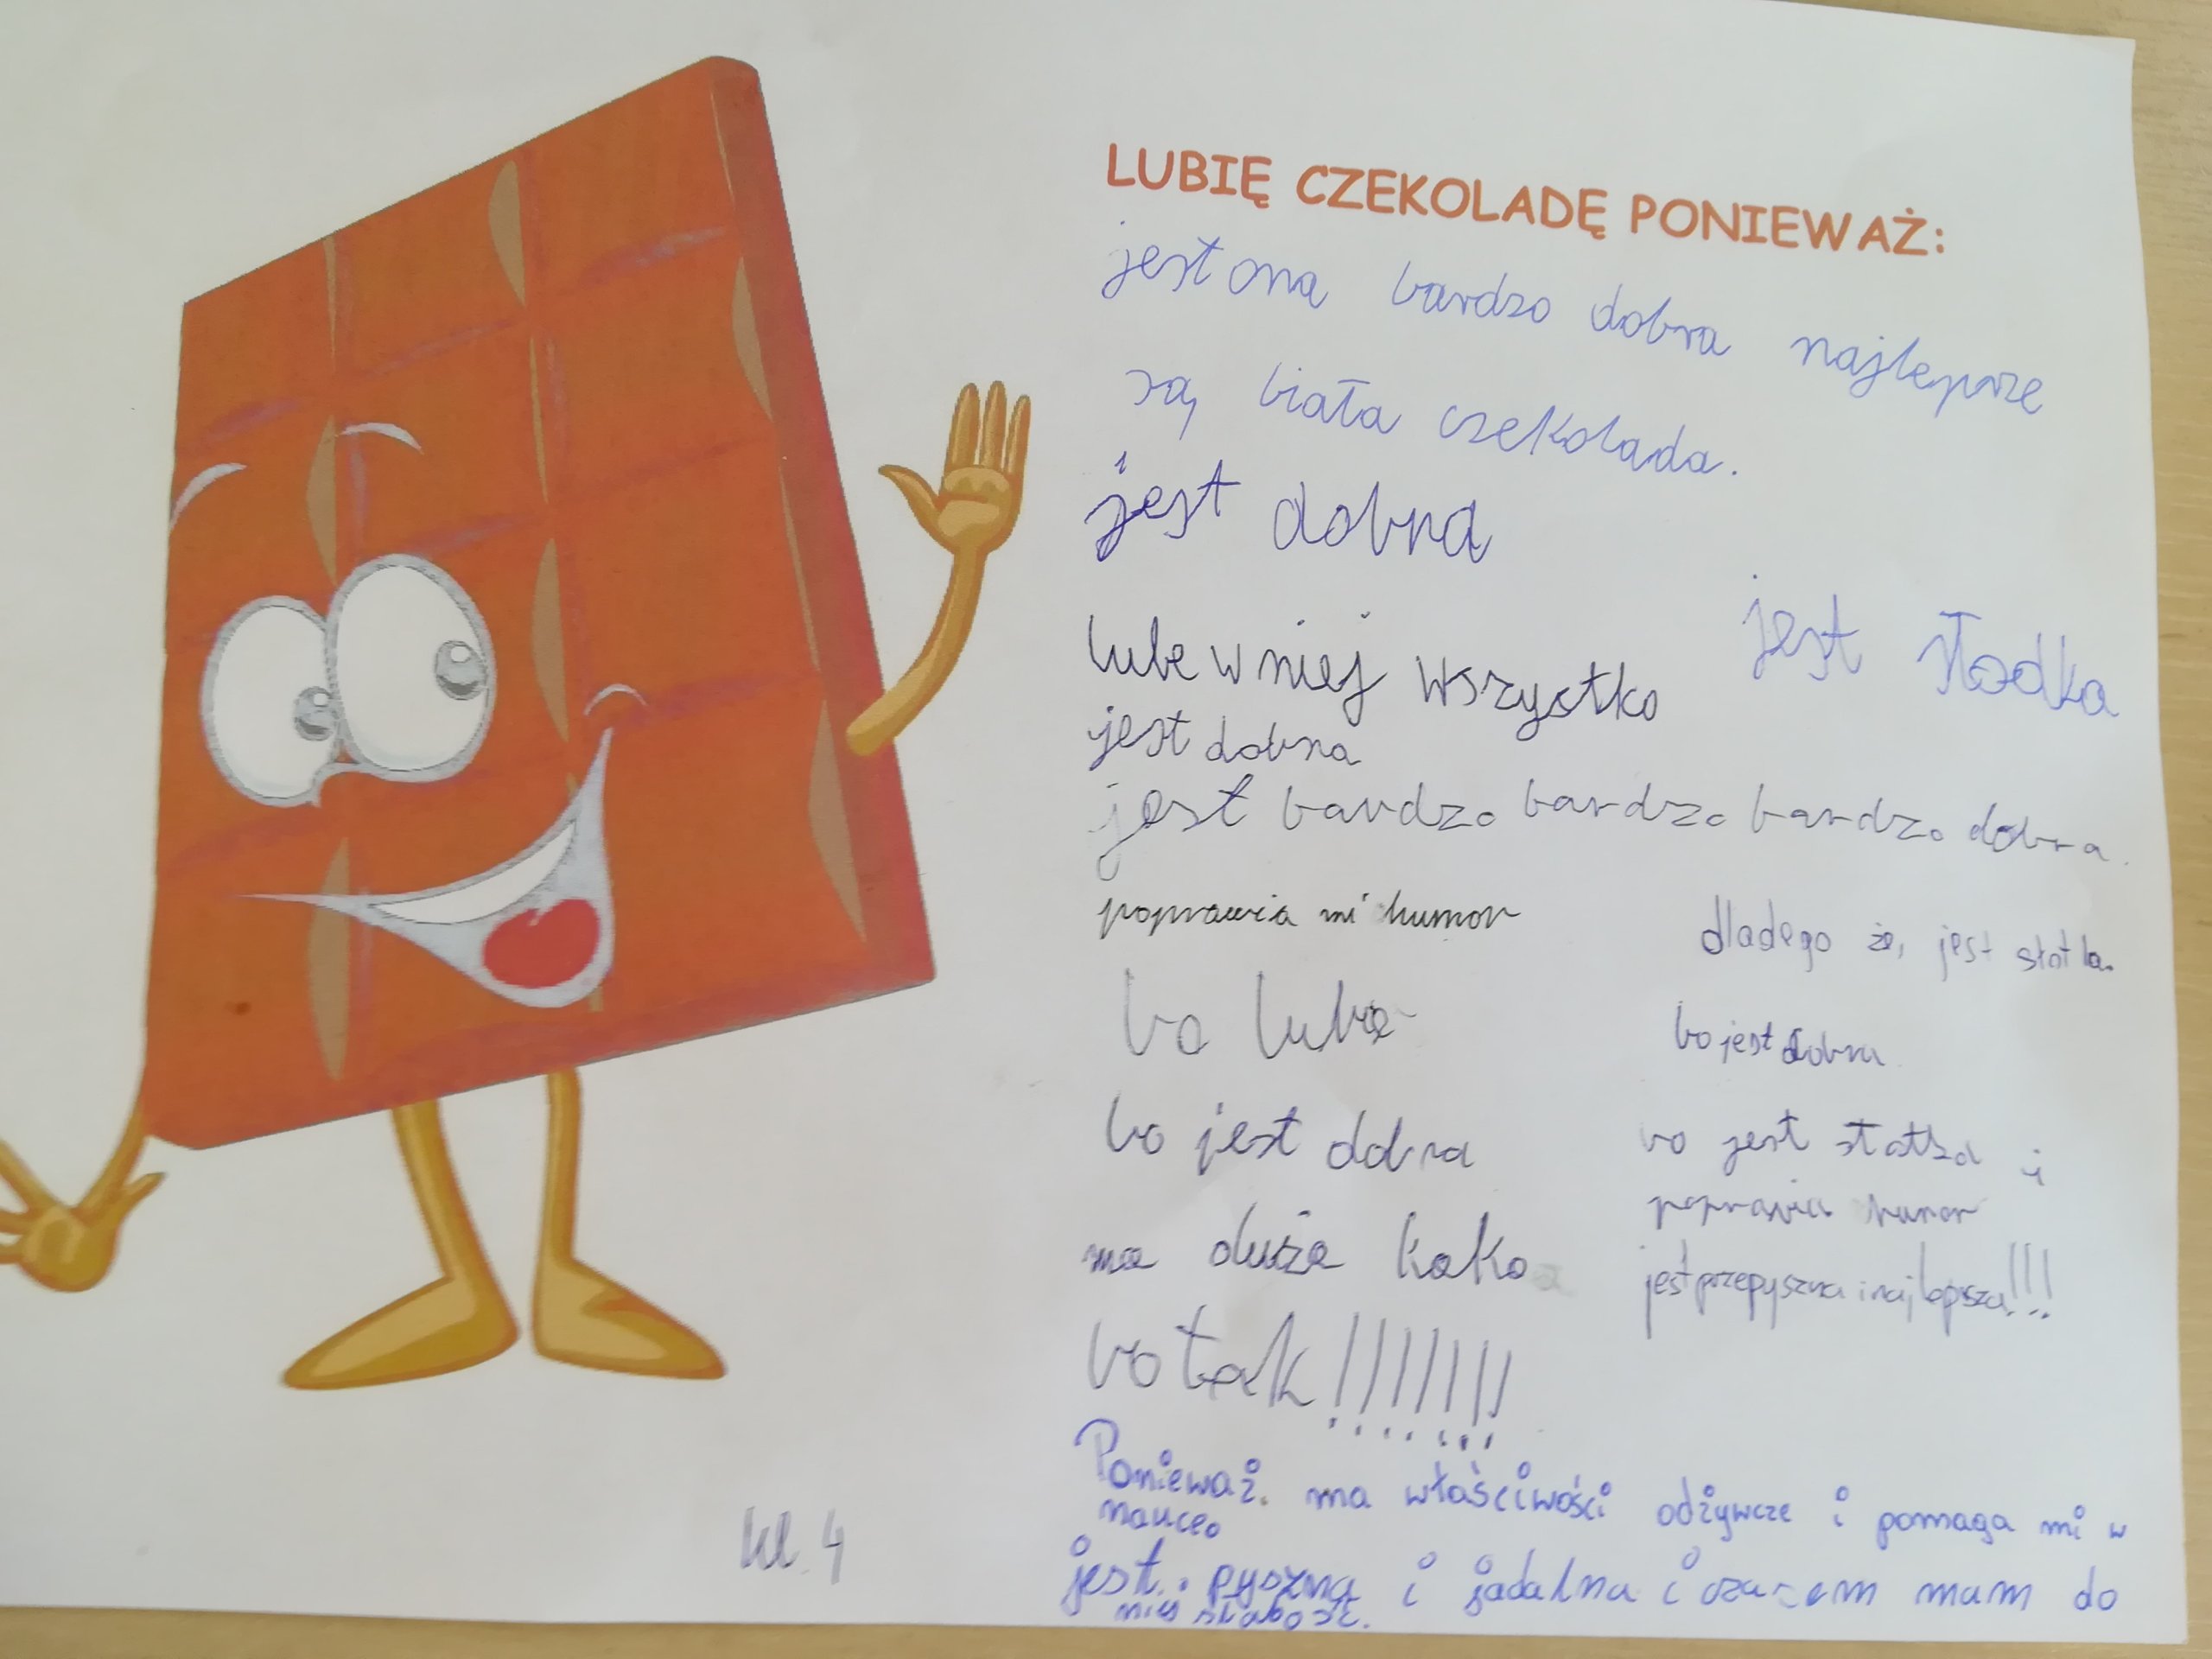 LUBIĘ CZEKOLADĘ PONIEWAŻ:
jest ona bardzo dobra najlepsze
są biała czekolada.
jest dobra
jest słodka
lube w niej wszystko
jest dobra
jest bardzo bardzo bardzo dobra.
poprawia mi humor
dladego że, jest słotka.
bo lubię
bo jest dobra
bo jest dobra
bo jest słotka i
poprawia humor
ma duże kako
jest przepyszna i najlepsza!!!
bo tak!!!!!!!
Ponieważ. ma właściwości odżywcze i pomaga mi w
nauceo
jest. pyszna i jadalna i czasem mam do
niej słabość.
kl. 4